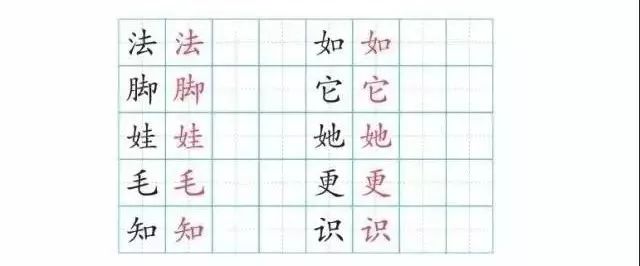 法 法 如 如
脚 脚 它 它
娃 娃 她 她
毛 毛 更 更
知 知 识 识